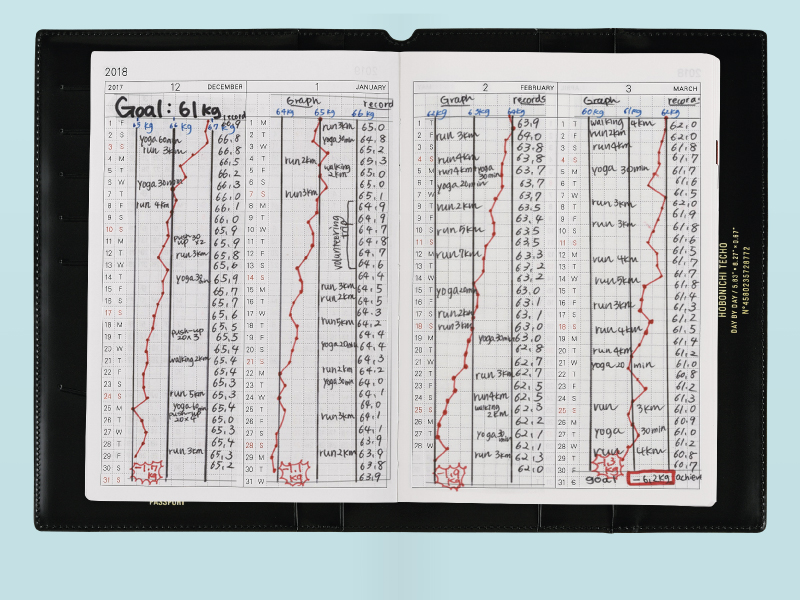 2018
2017 12 DECEMBER
Goal: 61kg
record
65 kg 66 kg 67 kg
1 F
2 S yoga 60min 66.8
3 S run 3km 66.8
4 M 66.5
5 T 66.2
6 W yoga 30min 66.3
7 T 66.0
8 F run 4km 66.1
9 S 66.0
10 S 65.9
11 M push-up 20 ×2 65.9
12 T run 3km 65.8
13 W 65.6
14 T yoga 30min 65.9
15 F 65.7
16 S 65.7
17 S 65.6
18 M 65.5
19 T push-up 20×3 65.5
20 W 65.4
21 T walking 2km 65.4
22 F 65.4
23 S 65.3
24 S run 5km 65.3
25 M yoga 65.4
26 T push-up 20×4 65.0
27 W 65.3
28 T 65.4
29 F run 3km 65.3
30 S 65.2
31 S
1 JANUARY
Graph record
64kg 65kg 66kg
1 M run 3km 65.0
2 T yoga 30min 64.8
3 W 65.2
4 T run 2km 65.3
5 F walking 2km 65.0
6 S 65.0
7 S run 3km 65.1
8 M 64.9
9 T 64.9
10 W volunteering trip 64.7
11 T 64.8
12 F 64.7
13 S 64.6
14 S 64.4
15 M run 3km 64.5
16 T run 2km 64.5
17 W 64.3
18 T run 5km 64.2
19 F 64.4
20 S yoga 20min 64.4
21 S 64.3
22 M run 2km 64.2
23 T yoga 30min 64.0
24 W 64.1
25 T 64.0
26 F run 3km 64.1
27 S 64.1
28 S 63.9
29 M run 2km 63.9
30 T 63.8
31 W 63.9
2 FEBRUARY
Graph records
63kg 64kg
1 T 63.9
2 F run 3km 64.0
3 S 63.8
4 S run 4km 63.8
5 M run 4km yoga 30min 63.7
6 T yoga 20min 63.7
7 W 63.7
8 T run 2km 63.5
9 F 63.4
10 S run 5km 63.5
11 S 63.5
12 M run 7km 63.3
13 T 63.2
14 W 63.2
15 T yoga 63.0
16 F 63.1
17 S run 2km 63.1
18 S run 3km 63.0
19 M yoga 30min 63.0
20 T 62.8
21 W 62.7
22 T run 3km 62.7
23 F 62.5
24 S run 4km 62.5
25 S walking 2km 62.3
26 M 62.2
27 T yoga 30 min 62.1
28 W 62.1
run 3km 62.3
62.0
3 MARCH
Graph records
60kg 61kg 62kg
1 T walking 4km 62.0
2 F run 2km
3 S run 4km 61.8
4 S 61.7
5 M yoga 30min 61.7
6 T 61.6
7 W 61.5
8 T run 3km 62.0
9 F 61.9
10 S run 3km 61.8
11 S 61.6
12 M 61.5
13 T run 4km 61.7
14 W 61.7
15 T run 5km 61.8
16 F 61.4
17 S run 3km 61.3
18 S 61.2
19 M run 4km 61.5
20 T 61.4
21 W run 4km 61.2
22 T yoga 20 min 61.0
23 F 60.8
24 S 61.2
25 S 61.3
26 M run 3km 61.0
27 T 60.9
28 W yoga 30min 61.0
29 T 61.2
30 F run 4km 60.8
60.7
31 S goal −6.2kg achiev
PASSPORT
HOBONICHI TECHO
DAY BY DAY / 5.83" × 8.27" × 0.67"
N°4580235728772